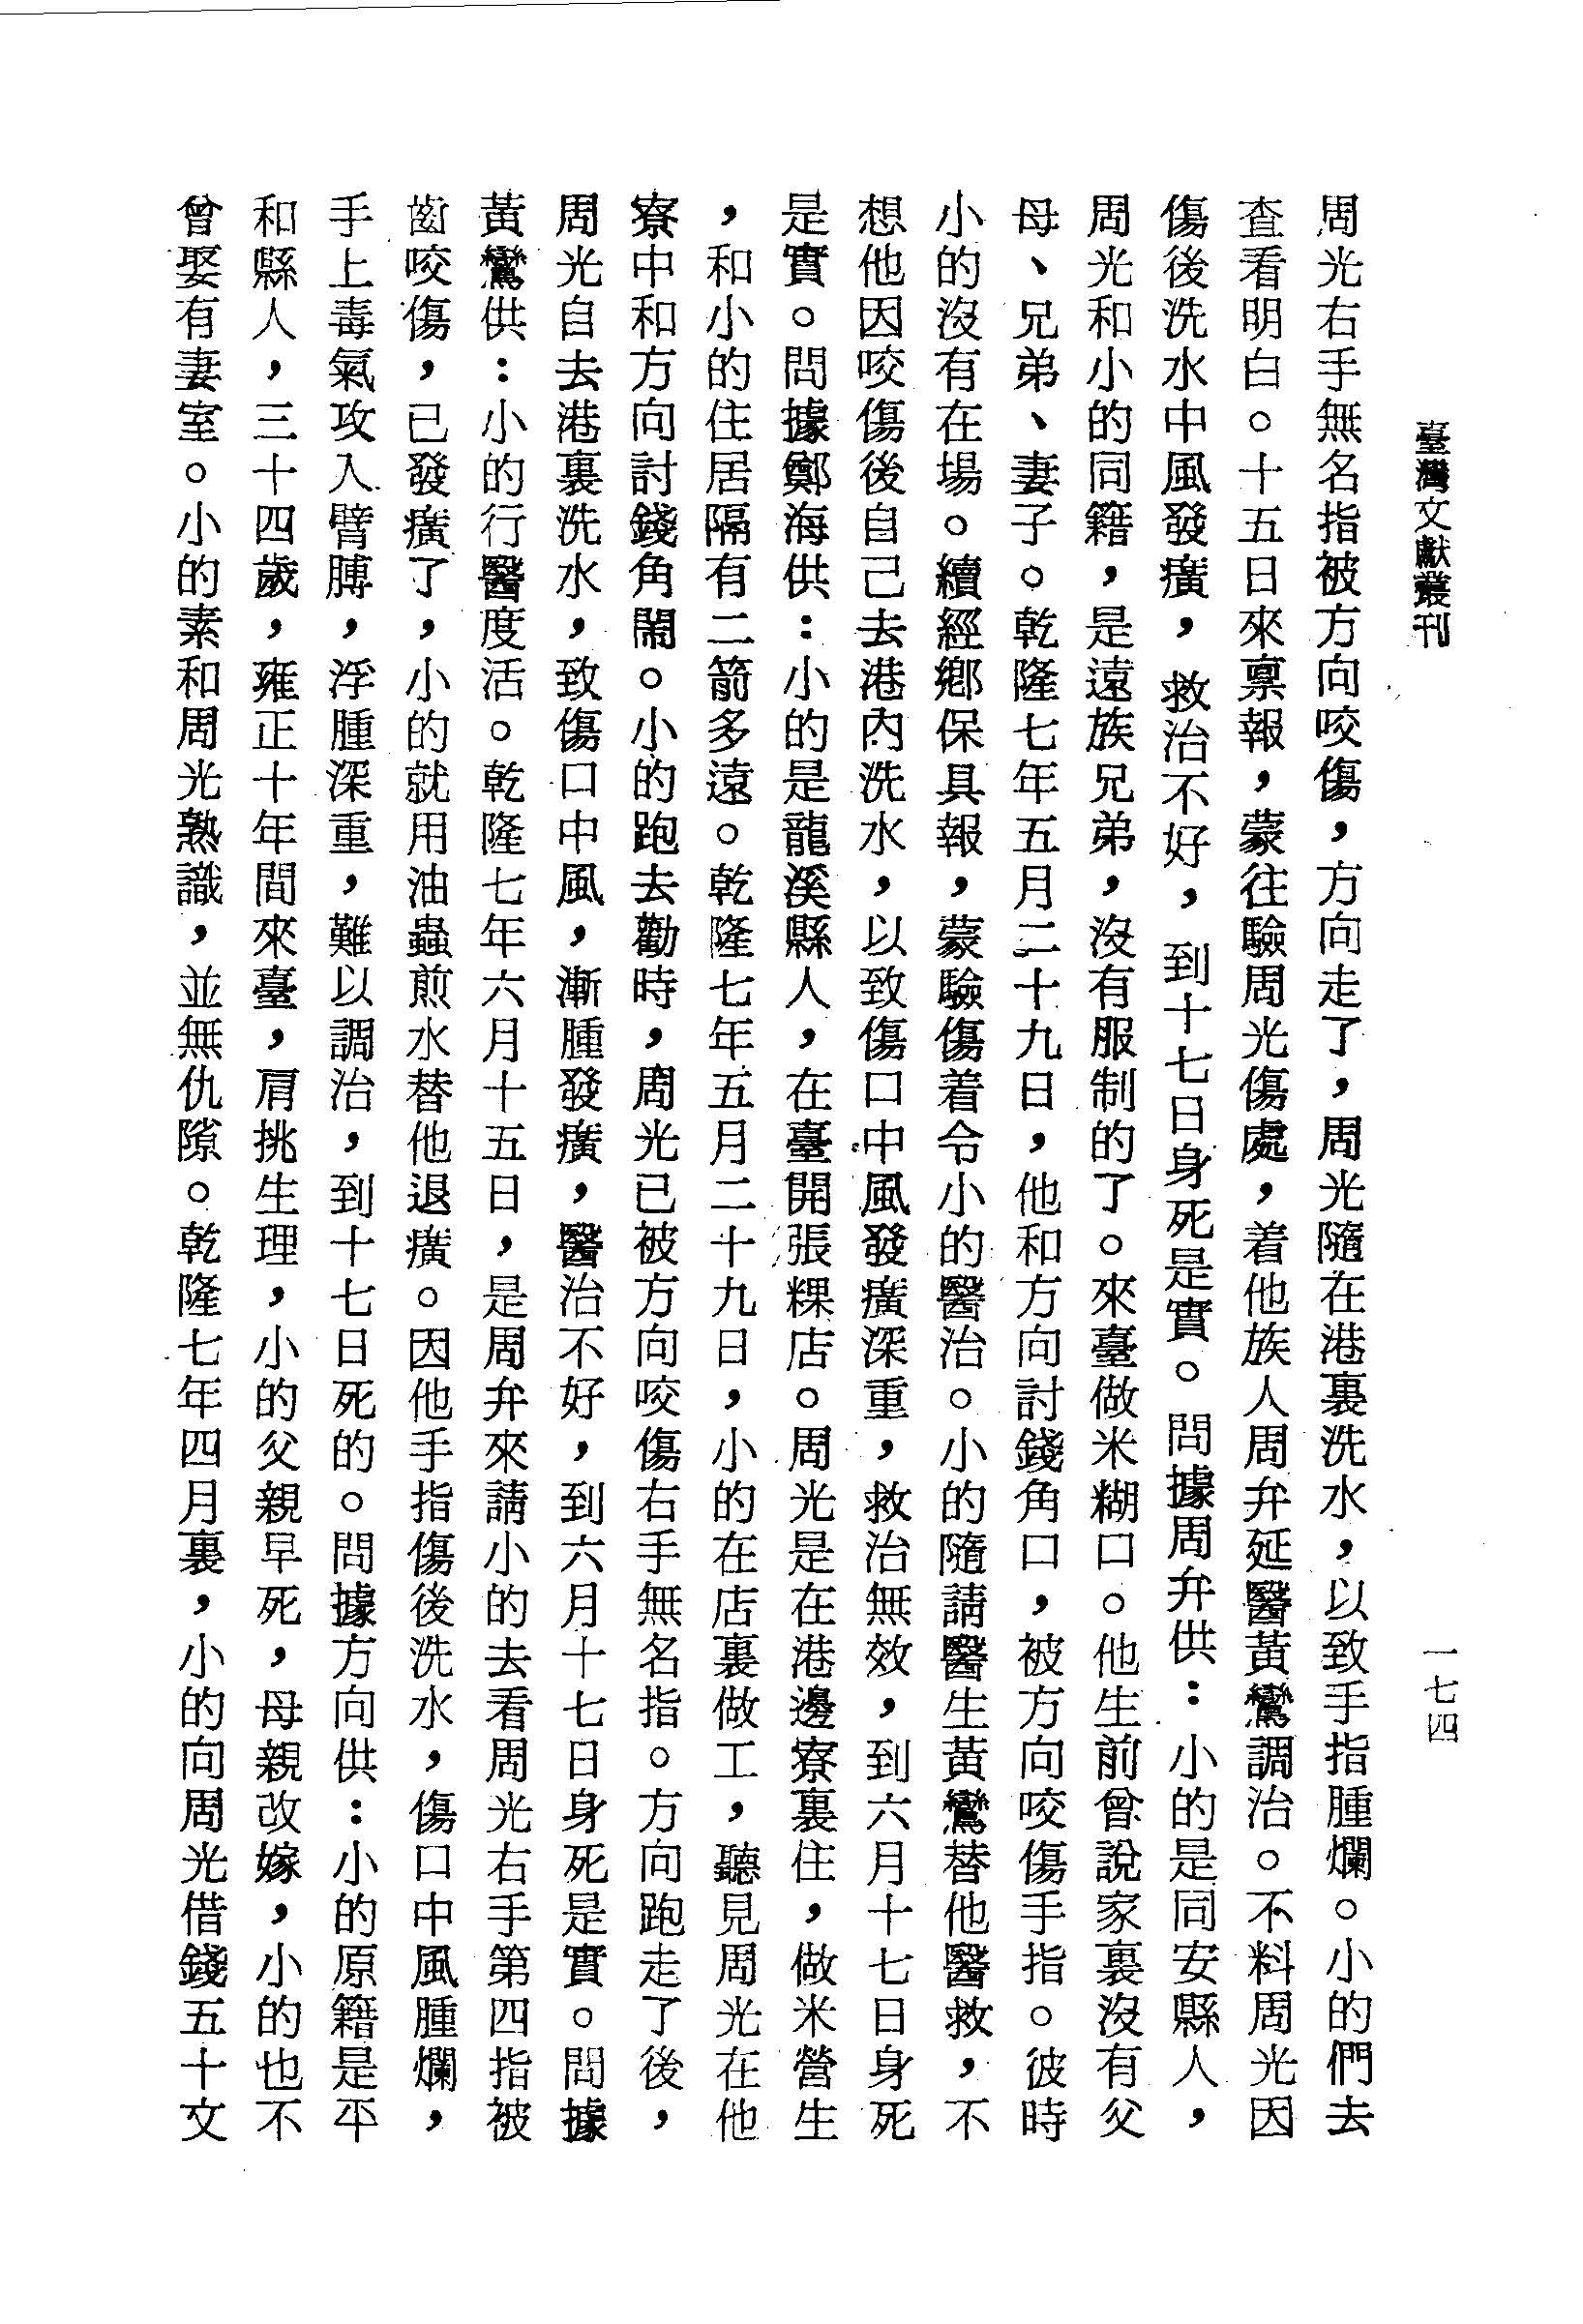 臺灣文獻叢刊
一七四
周光右手無名指被方向咬傷，方向走了，周光隨在港裏洗水，以致手指腫爛。小的們去
查看明白。十五日來稟報，蒙往驗周光傷處，着他族人周弁延醫黃鸞調治。不料周光因
傷後洗水中風發癀，救治不好，到十七日身死是實。問據周弁供：小的是同安縣人，
周光和小的同籍，是遠族兄弟，沒有服制的了。來臺做米糊口。他生前曾說家裏沒有父
母、兄弟、妻子。乾隆七年五月二十九日，他和方向討錢角口，被方向咬傷手指。彼時
小的沒有在場。續經鄉保具報，蒙驗傷着令小的醫治。小的隨請醫生黃鸞替他醫救，不
想他因咬傷後自己去港內洗水，以致傷口中風發癀深重，救治無效，到六月十七日身死
是實。問據鄭海供：小的是龍溪縣人，在臺開張粿店。周光是在港邊寮裏住，做米營生
，和小的住居隔有二箭多遠。乾隆七年五月二十九日，小的在店裏做工，聽見周光在他
寮中和方向討錢角鬧。小的跑去勸時，周光已被方向咬傷右手無名指。方向跑走了後，
周光自去港裏洗水，致傷口中風，漸腫發癀，醫治不好，到六月十七日身死是實。問據
黃鸞供：小的行醫度活。乾隆七年六月十五日，是周弁來請小的去看周光右手第四指被
齒咬傷，已發癀了，小的就用油蟲煎水替他退癀。因他手指傷後洗水，傷口中風腫爛，
手上毒氣攻入臂膊，浮腫深重，難以調治，到十七日死的。問據方向供：小的原籍是平
和縣人，三十四歲，雍正十年間來臺，肩挑生理，小的父親早死，母親改嫁，小的也不
曾娶有妻室。小的素和周光熟識，並無仇隙。乾隆七年四月裏，小的向周光借錢五十文